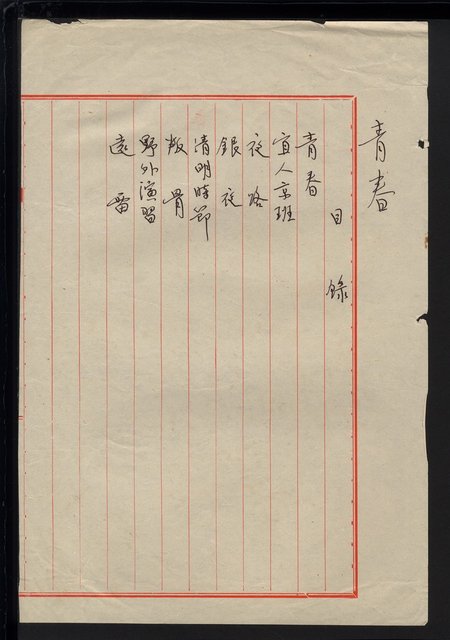 青春
目錄
青春
宜人京班
夜路
銀夜
清明時節
叛骨
野外演習
遠雷